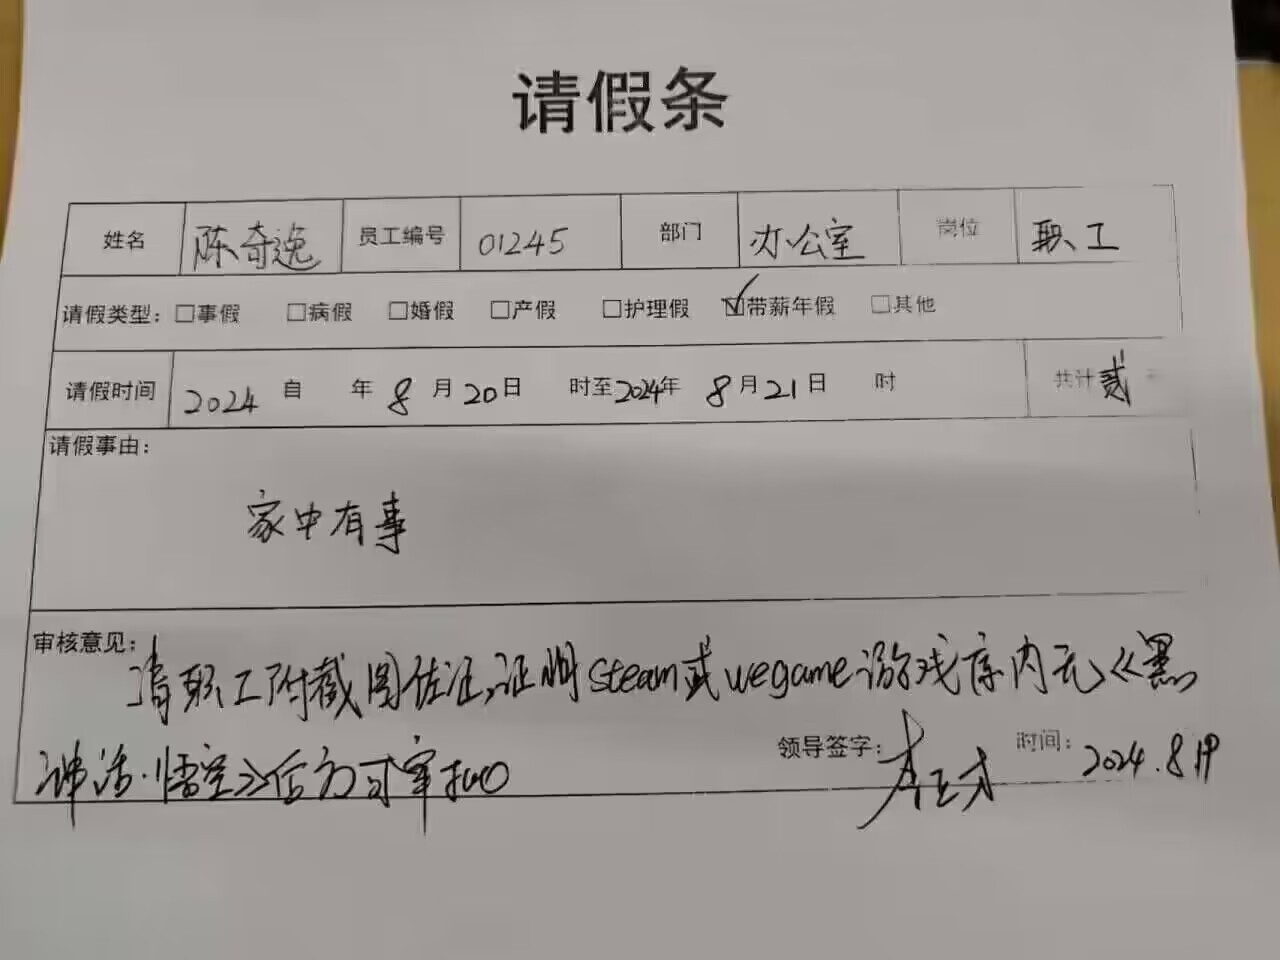 请假条
姓名 陈奇逸 员工编号 01245 部门 办公室 岗位 职工
请假类型：□事假 □病假 □婚假 □产假 □护理假 ☑带薪年假 □其他
请假时间 2024 自 年 8 月 20 日 时至 2024 年 8 月 21 日 时 共计 贰
请假事由：
家中有事
审核意见：
请职工附截图佐证,证明steam或wegame游戏库内无《黑
神话·悟空》后方可审批
领导签字： 时间： 2024.8.19